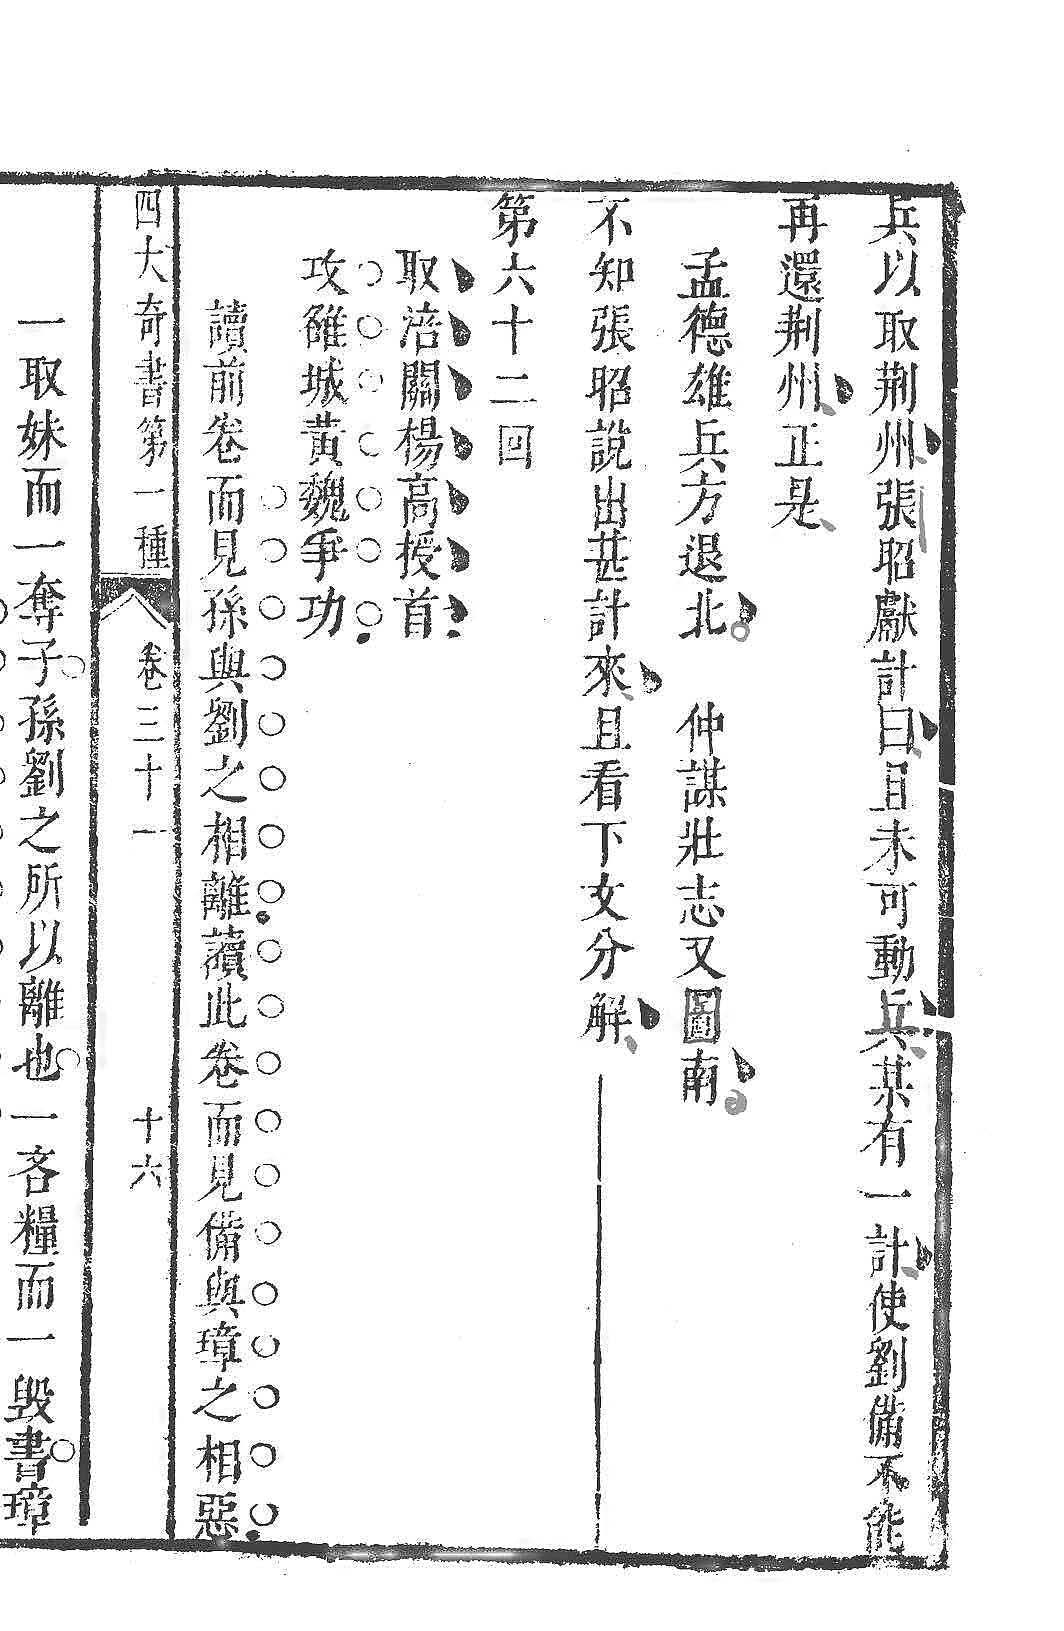 兵以取荆州張昭獻計曰且未可動兵某有一計使劉備不能
再還荆州正是
孟德雄兵方退北　仲謀壯志又圖南
不知張昭說出甚計來且看下文分解
第六十二回
取涪關楊高授首
攻雒城黃魏爭功
讀前卷而見孫與劉之相離讀此卷而見備與璋之相惡
四大奇書第一種　卷三十一　十六
一取妹而一奪子孫劉之所以離也一吝糧而一毁書璋